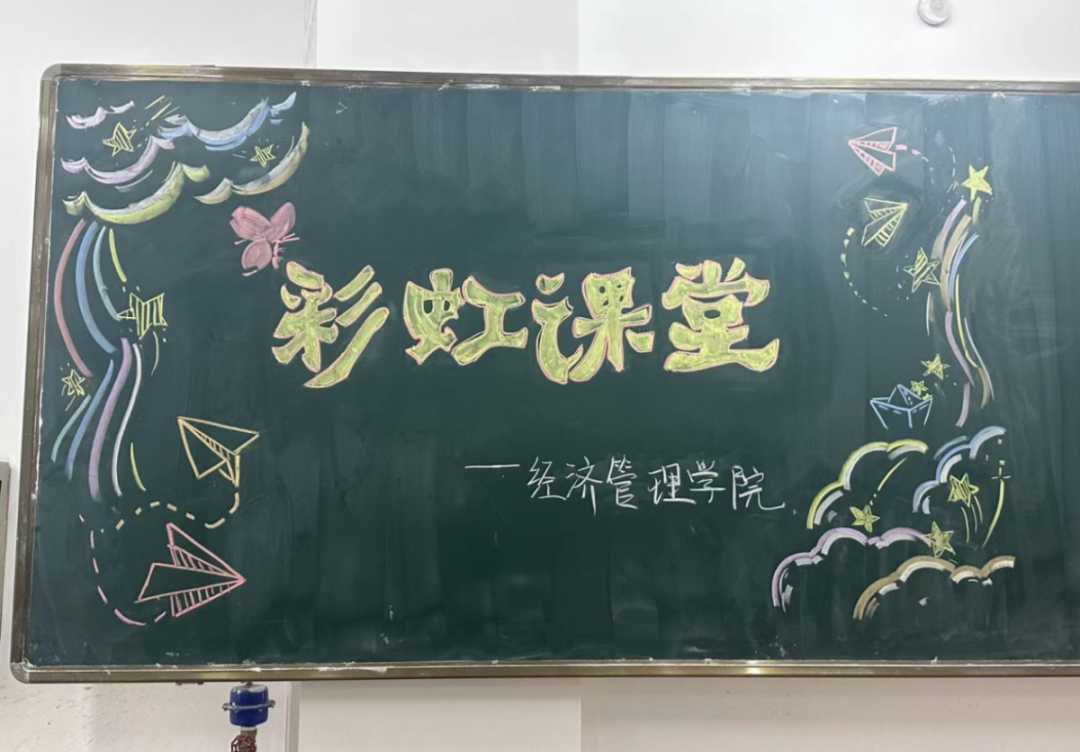 彩虹课堂
—经济管理学院